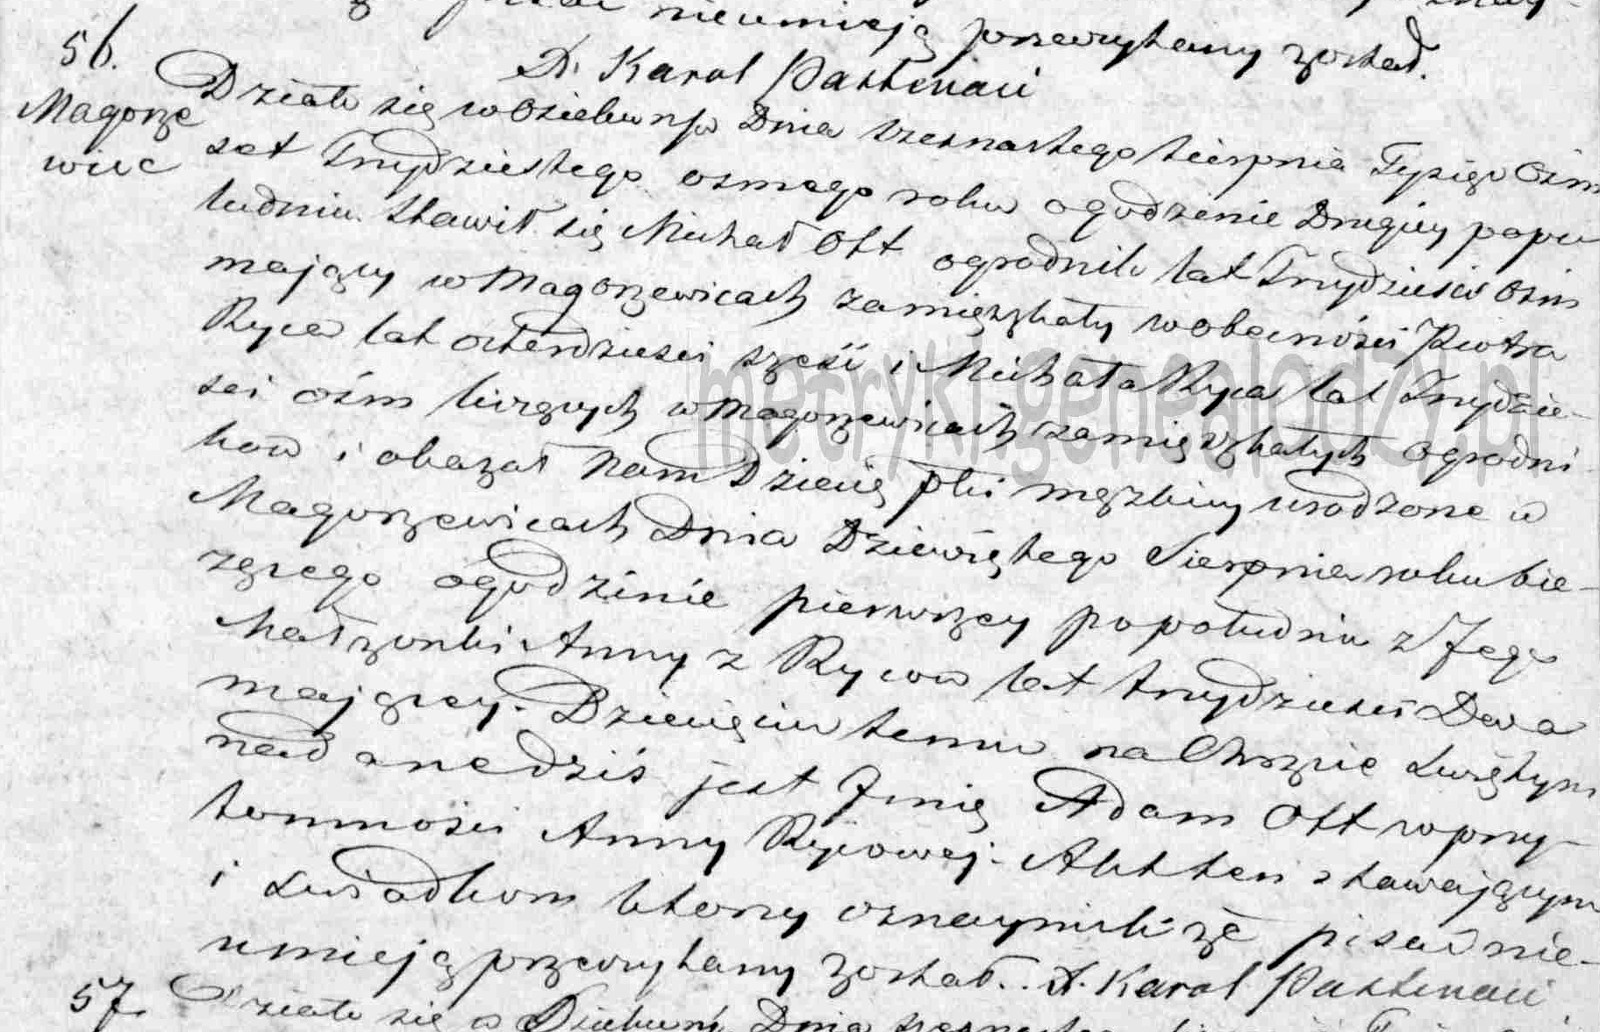 nieumieją przeczytany został.
X. Karol Pastenaci
56. Działo się w Dnia szesnastego Sierpnia Tysiąc Ośm
Magorze
wice
set Trzydziestego osmego roku o godzenie Drugiey popo
ludniu. Stawił się Michał Ott ogrodnik lat Trzydzieści Ośm
maiący w Magorzewicach zamięszkały w obecności Piotra
Ryca lat czterdzieści szęść i Michała Ryca lat Trzydzie-
sci ośm liczących w Magorzewicach zamięszkałych ogrodni-
ków i okazał Nam Dziecię płci męzkiey urodzone w
Magorzewicach Dnia Dziewiętego Sierpnia roku bie-
zącego o godzinie pierwszey popołudniu z Jego
Małzonki Anny z Ryców lat trzydzieści Dwa
maiącey. Dziecięciu temu na Chrzcie Swiętym
nadane dziś jest Imię Adam Ott w przy-
tomności Anny Rycowej. Akt ten stawającym
i Swiadkom ktorzy oznaymili żę pisać nie-
umieją przeczytany został.. X. Karol Pastenaci
57. Działo się w Dnia szesnastego
metryki.genealodzy.pl